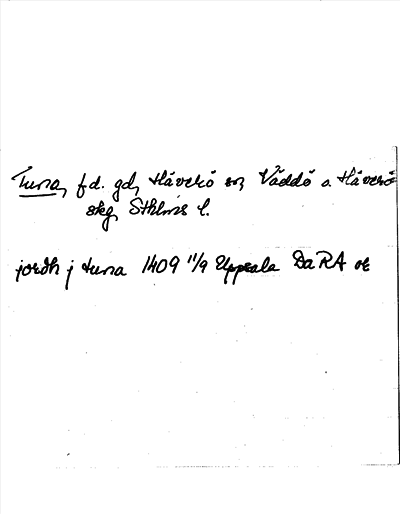 Tuna, f.d. gd, Häverö sn, Väddö o. Häverö
skg, Sthlms l.
jordh j tuna 1409 11/9 Uppsala DaRA or